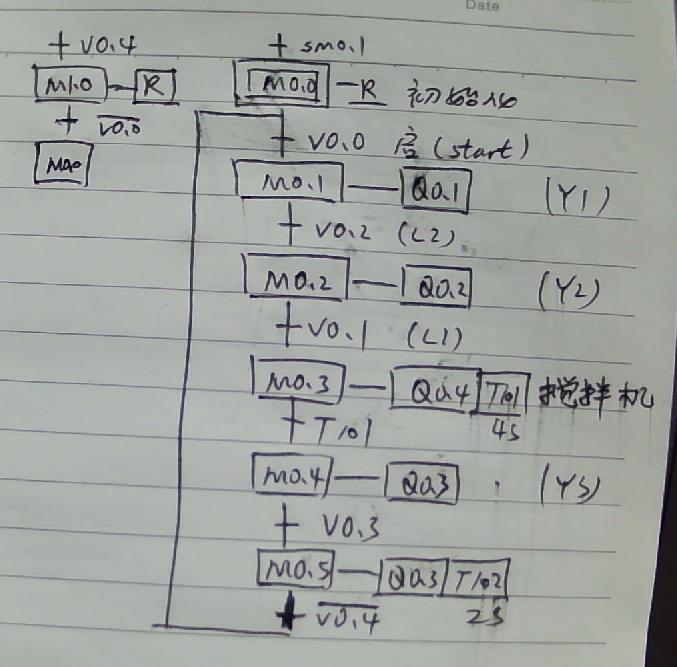 Date
+ V0.4
M1.0 — R
+ V̅0̅.̅0̅
M0.0
+ SM0.1
M0.0 — R 初始化
+ V0.0 启(start)
M0.1 — Q0.1 (Y1)
+ V0.2 (L2)
M0.2 — Q0.2 (Y2)
+ V0.1 (L1)
M0.3 — Q0.4 T101 搅拌机
4S
+ T101
M0.4 — Q0.3 (Y3)
+ V0.3
M0.5 — Q0.3 T102
2S
+ V̅0̅.̅4̅